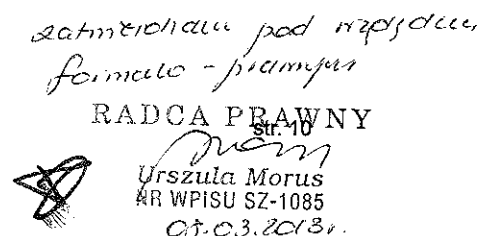 pod względem
formalno - prawnym
RADCA PRAWNY
str. 10
Urszula Morus
NR WPISU SZ-1085
03.2013r.